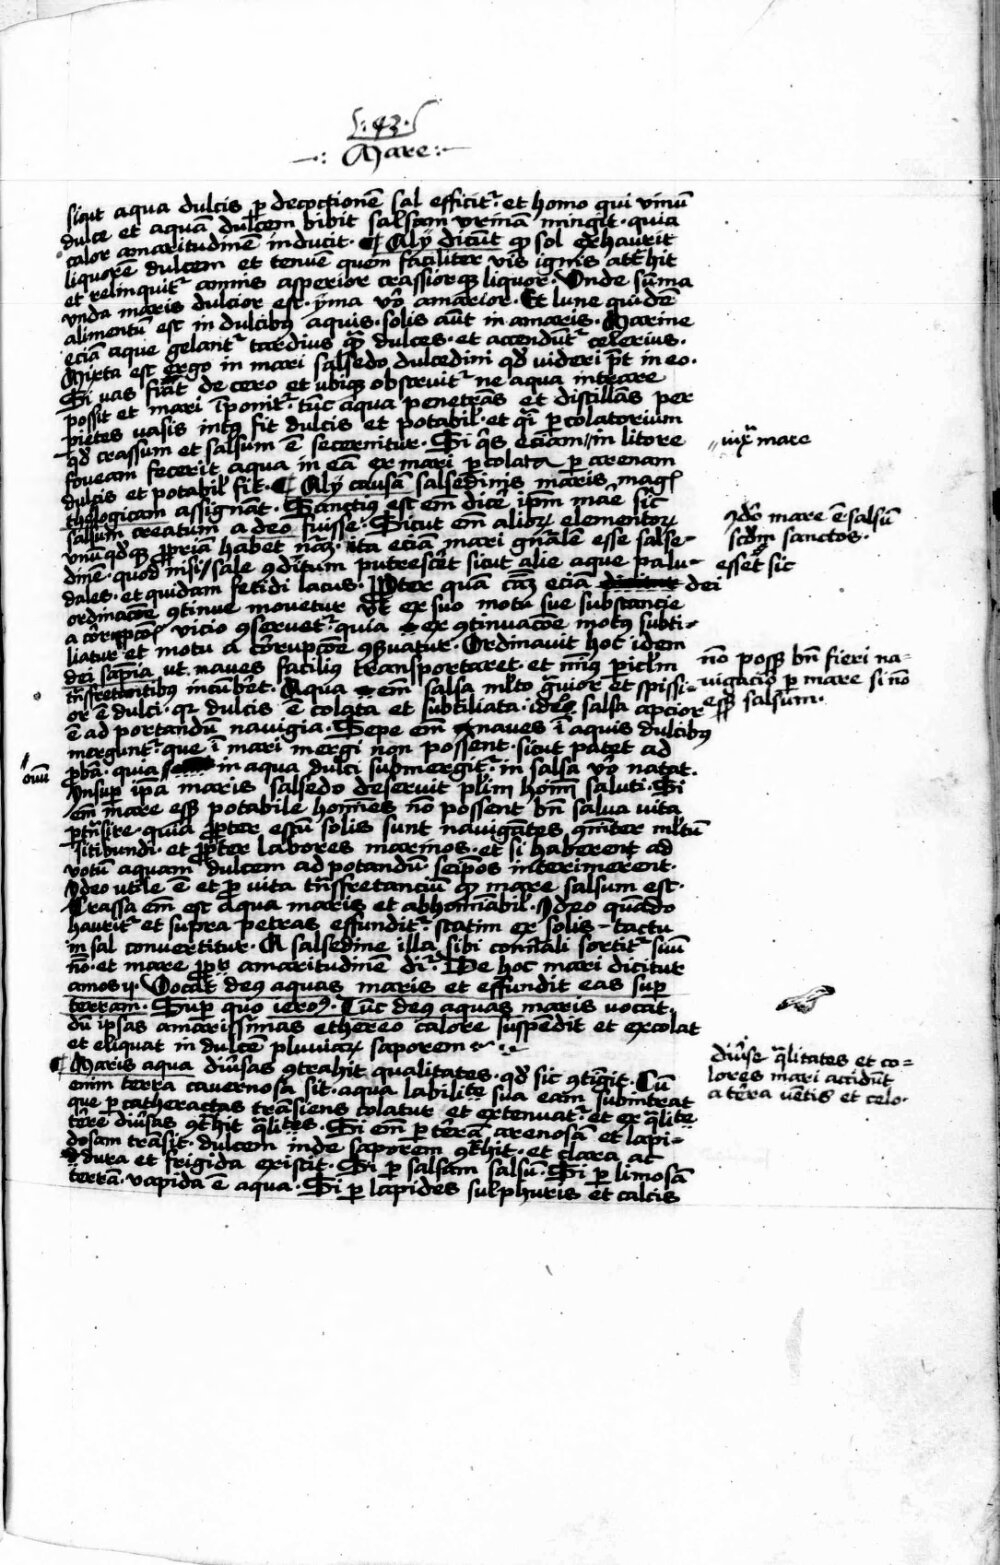 .43.
Mare
sicut aqua dulcis ꝑ decoctionē sal efficit᷑. et homo qui vinū
dulce et aquā dulcem bibit salsam vrinā mingit. quia
calor amaritudinē inducit. ¶ Alij dicūt ꝙ sol exhaurit
liquorē dulcem et tenuē quem faciliter vis ignis att͛hit
et relinquit᷑ omnis asperior crassiorqꝫ liquor. Vnde sūma
vnda maris dulcior est. yma v̊o amarior. Et lune quidē
alimentū est in dulcibꝰ aquis. solis aūt in amaris. Marine
eciā aque gelant᷑ tardius q̄ꝫ dulces. et accendūt᷑ celerius.
Mixta est ergo in mari salsedo dulcedini qd̛ videri p̄t in eo.
Si vas fiat de cero et ubiqꝫ obstruit᷑ ne aqua intrare
possit et mari īponit᷑. tūc aqua penetrās et distillās per
pietes vasis intꝰ fit dulcis et potabił. et q̄i ꝑ colatorium
qd̛ crassum et salsum ē secernitur. Si q̇s eciam in litore
foveam fecerit aqua in eā ex mari ꝑcolata ꝑ arenam
dulcis et potabił fit. ¶ Alij causā salsedinis maris mag͛
theologicam assignāt. Sanctius est em̄ dic͛e ip̄m mar̄ sic̄
salsum creatum a deo fuisse. Sicut em̄ alioꝝ elementoꝝ
vnūqd̛qꝫ ꝓpriā habet nām. ita eciam mari gn̄ale esse salse-
dinē. quod nisi sale ꝯditum putrescēt sicut alie aque palu-
dales. et quidam fetidi lacus. Ꝓpter quā cām eciā dei
ordinacōe ꝯtinue movetur vt ex suo motu sue substancie
a corrupcōis vicio ꝯseruet᷑. quia ex ꝯtinuacōe motꝰ subti-
liatur et motu a corrupcōe ꝯseruatur. Ordinavit hoc idem
dei sapīa vt naves facilius transportaret. et minꝰ pic͛lm̄
tn̄sfretantibus incub͛et. Aqua em̄ salsa ml̄to g̑uior et spissi-
or ē dulci. qꝛ dulcis ē colata et subtiliata. ideo salsa apcior
ē ad portandū navigia. Sepe em̄ naves ī aquis dulcibꝰ
mergunt᷑. que ī mari mergi non possent. sicut patet ad
ꝓbā. quia in aqua dulci submergit᷑. in salsa v̊o natat.
Insuꝑ ip̄a maris salsedo deseruit pl̄im hoīm saluti. Si
em̄ mare essꝫ potabile homīes nō possent bn̄ salva vita
ꝑtn̄sire. quia ꝓpter estū solis sunt navigātes ml̄tū
sitibundi. et ꝓpter labores marinos. et si haberent ad
votū aquam dulcem ad potandū. seip̄os interimerent.
Ideo utile ē et ꝑ vita tn̄sfretanciū ꝙ mare salsum est.
Crassa em̄ est aqua maris et abhominabił. Ideo quādo
haurit᷑ et supra petras effundit᷑. statim ex solis tactu
in sal convertitur. A salsedine illa sibi connāli sortit᷑ suū
nō. et mare ꝓpt͛ amaritudinē dr̄. De hoc mari dicitur
amos ij. Vocat deꝰ aquas maris et effundit eas suꝑ
terram. Suꝑ quo ieroꝰ. Tūc deꝰ aquas maris vocat.
dū ipsas amarissimas ethereo calore suspēdit et excolat
et eliquat in dulcē pluviaꝝ saporem
¶ Maris aqua diu͛sas ꝯtrahit qualitates. qd̛ sic ꝯtīgit. Cū
enim terra cavernosa sit. aqua labilite sua eam subintrat
que ꝑ catheractas trāsiens colatur et extenuat᷑. et ex q̄lite
t͛re diu͛sas ꝯt͛hit q̄lites. Si em̄ ꝑ t͛rā arenosā et lapi-
dosam trāsit. dulcem inde saporem ꝯt͛hit. et clara ac
dura et frigida existit. Si ꝑ salsam salsū. Si ꝑ limosā
terrā. vapida ē aqua. Si ꝑ lapides sulphuris et calcis
iuxͣ mare
Ideo mare ē salsū
scd̄m sanctos.
essēt sic
nō possꝫ bn̄ fieri na-
vigacio ꝑ mare si nō
essꝫ salsum.
ovū
diu͛se q̄litates et co-
lores mari accidūt
a terra vētis et celo.